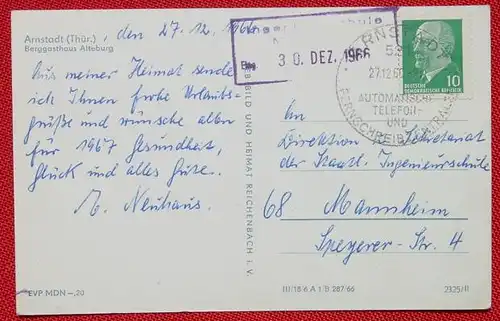 Arnstadt (Thür.), den 27.12.1966
Berggasthaus Alteburg
Aus meiner Heimat sende
ich Ihnen frohe Urlaubs-
grüße und wünsche allen
für 1967 Gesundheit,
Glück und alles Gute.
E. Neuhaus.
EVP MDN -,20
BILD UND HEIMAT REICHENBACH I. V.
30. DEZ. 1966
27.12.66
AUTOMATISCHE
TELEFON-
UND
FERNSCHREIB
DEUTSCHE
DEMOKRATISCHE REPUBLIK
10
An
Direktion Sekretariat
der Staatl. Ingenieurschule
68 Mannheim
Speyerer-Str. 4
III/18 6 A 1 B 287/66
2325/II